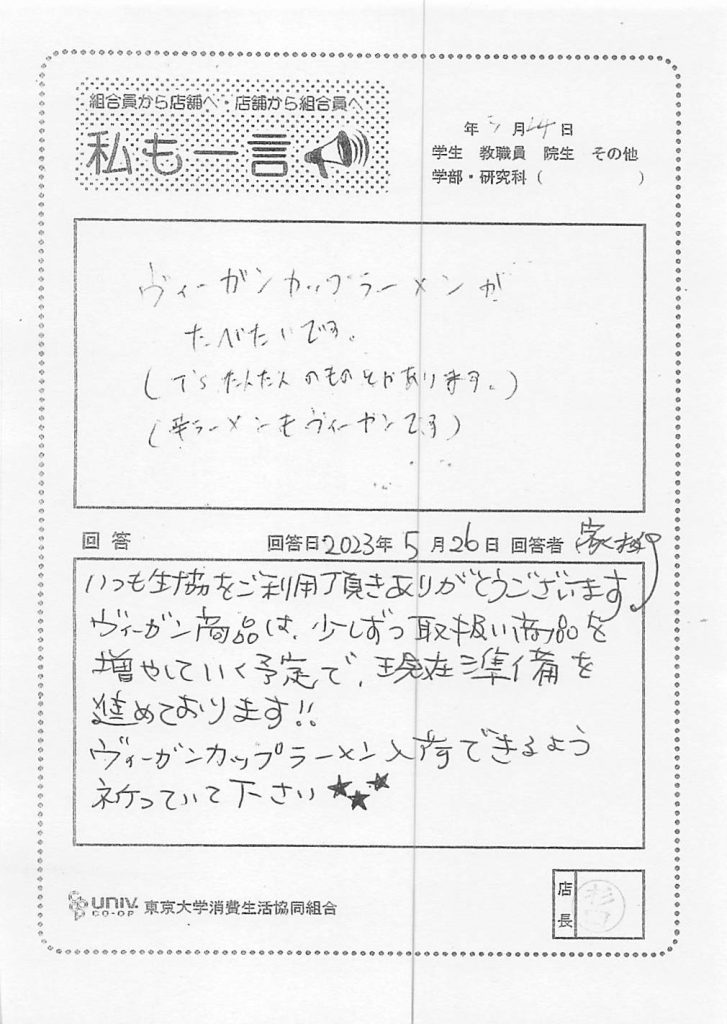 組合員から店舗へ・店舗から組合員へ
私も一言
年 5 月 24 日
学生 教職員 院生 その他
学部・研究科（ ）
ヴィーガンカップラーメンが
たべたいです。
( たんたん のものとかあります。)
(辛ラーメンもヴィーガンです)
回答 回答日 2023年 5 月 26 日 回答者
いつも生協をご利用頂きありがとうございます
ヴィーガン商品は、少しずつ取扱い商品を
増やしていく予定で、現在準備を
進めております!!
ヴィーガンカップラーメン入荷できるよう
祈っていて下さい★★★
UNIV. CO-OP 東京大学消費生活協同組合
店長